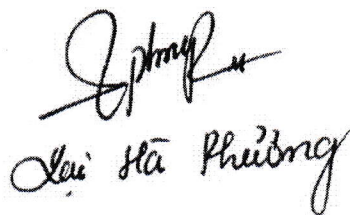 Lại Hà Phưởng